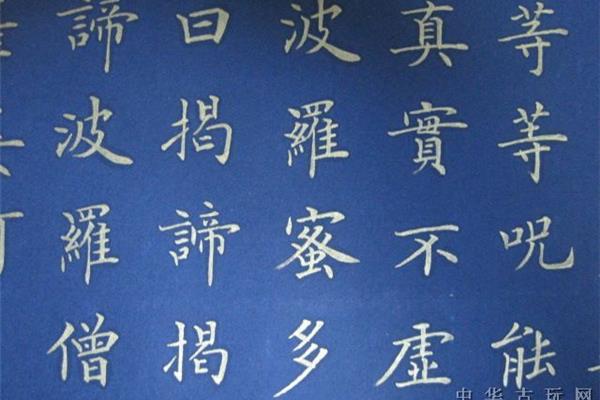 等等呪能
真實不虛
波羅蜜多
曰揭諦揭
諦波羅僧
中华古玩网